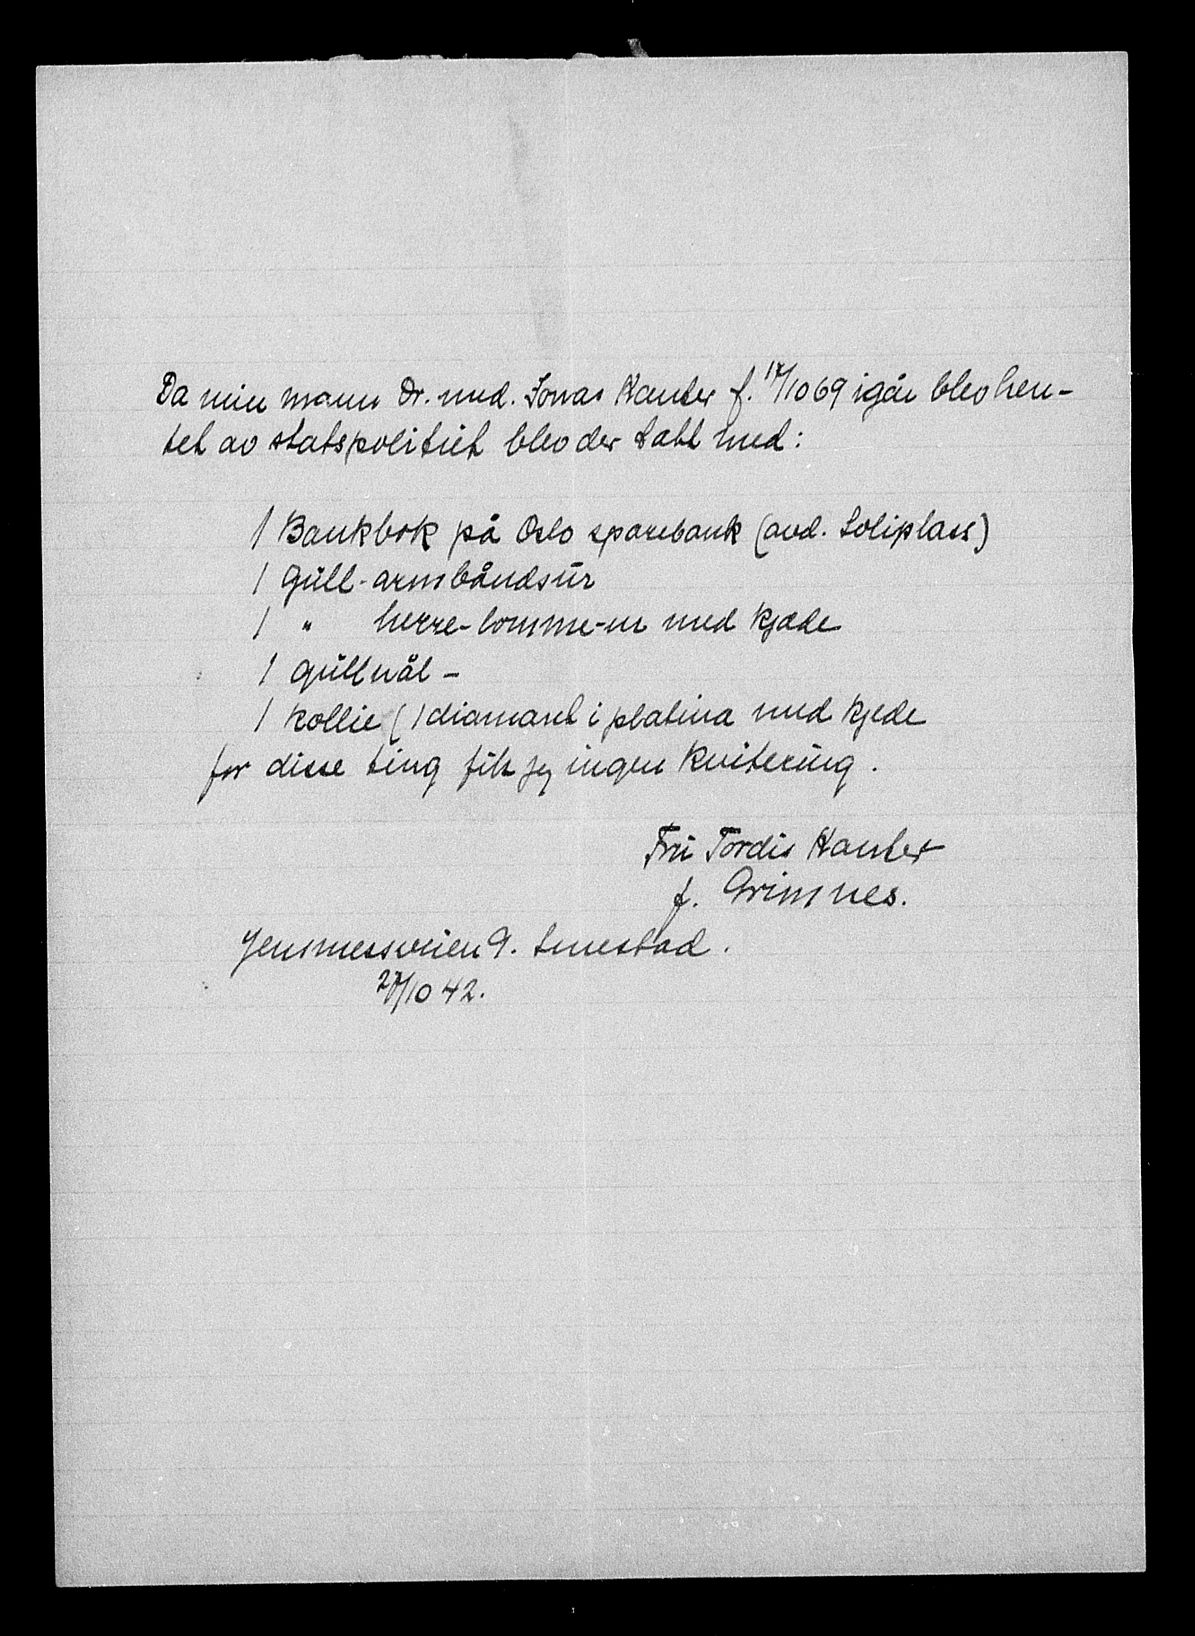 Da min mann Dr. med. Jonas Kanter f. 17/10 69 igår blev hen-
tet av statspolitiet blev der tatt med:
1 Bankbok på Oslo sparebank (avd. Soliplass)
1 Gull-armbåndsur
1 " herre-lomme-ur med kjæde
1 gullnål -
1 kollie (1 diamant i platina med kjede
for disse ting fik jeg ingen kvitering.
Fru Tordis Kanter
f. Grimnes.
Jensmessveien 9. Smestad.
27/10 42.